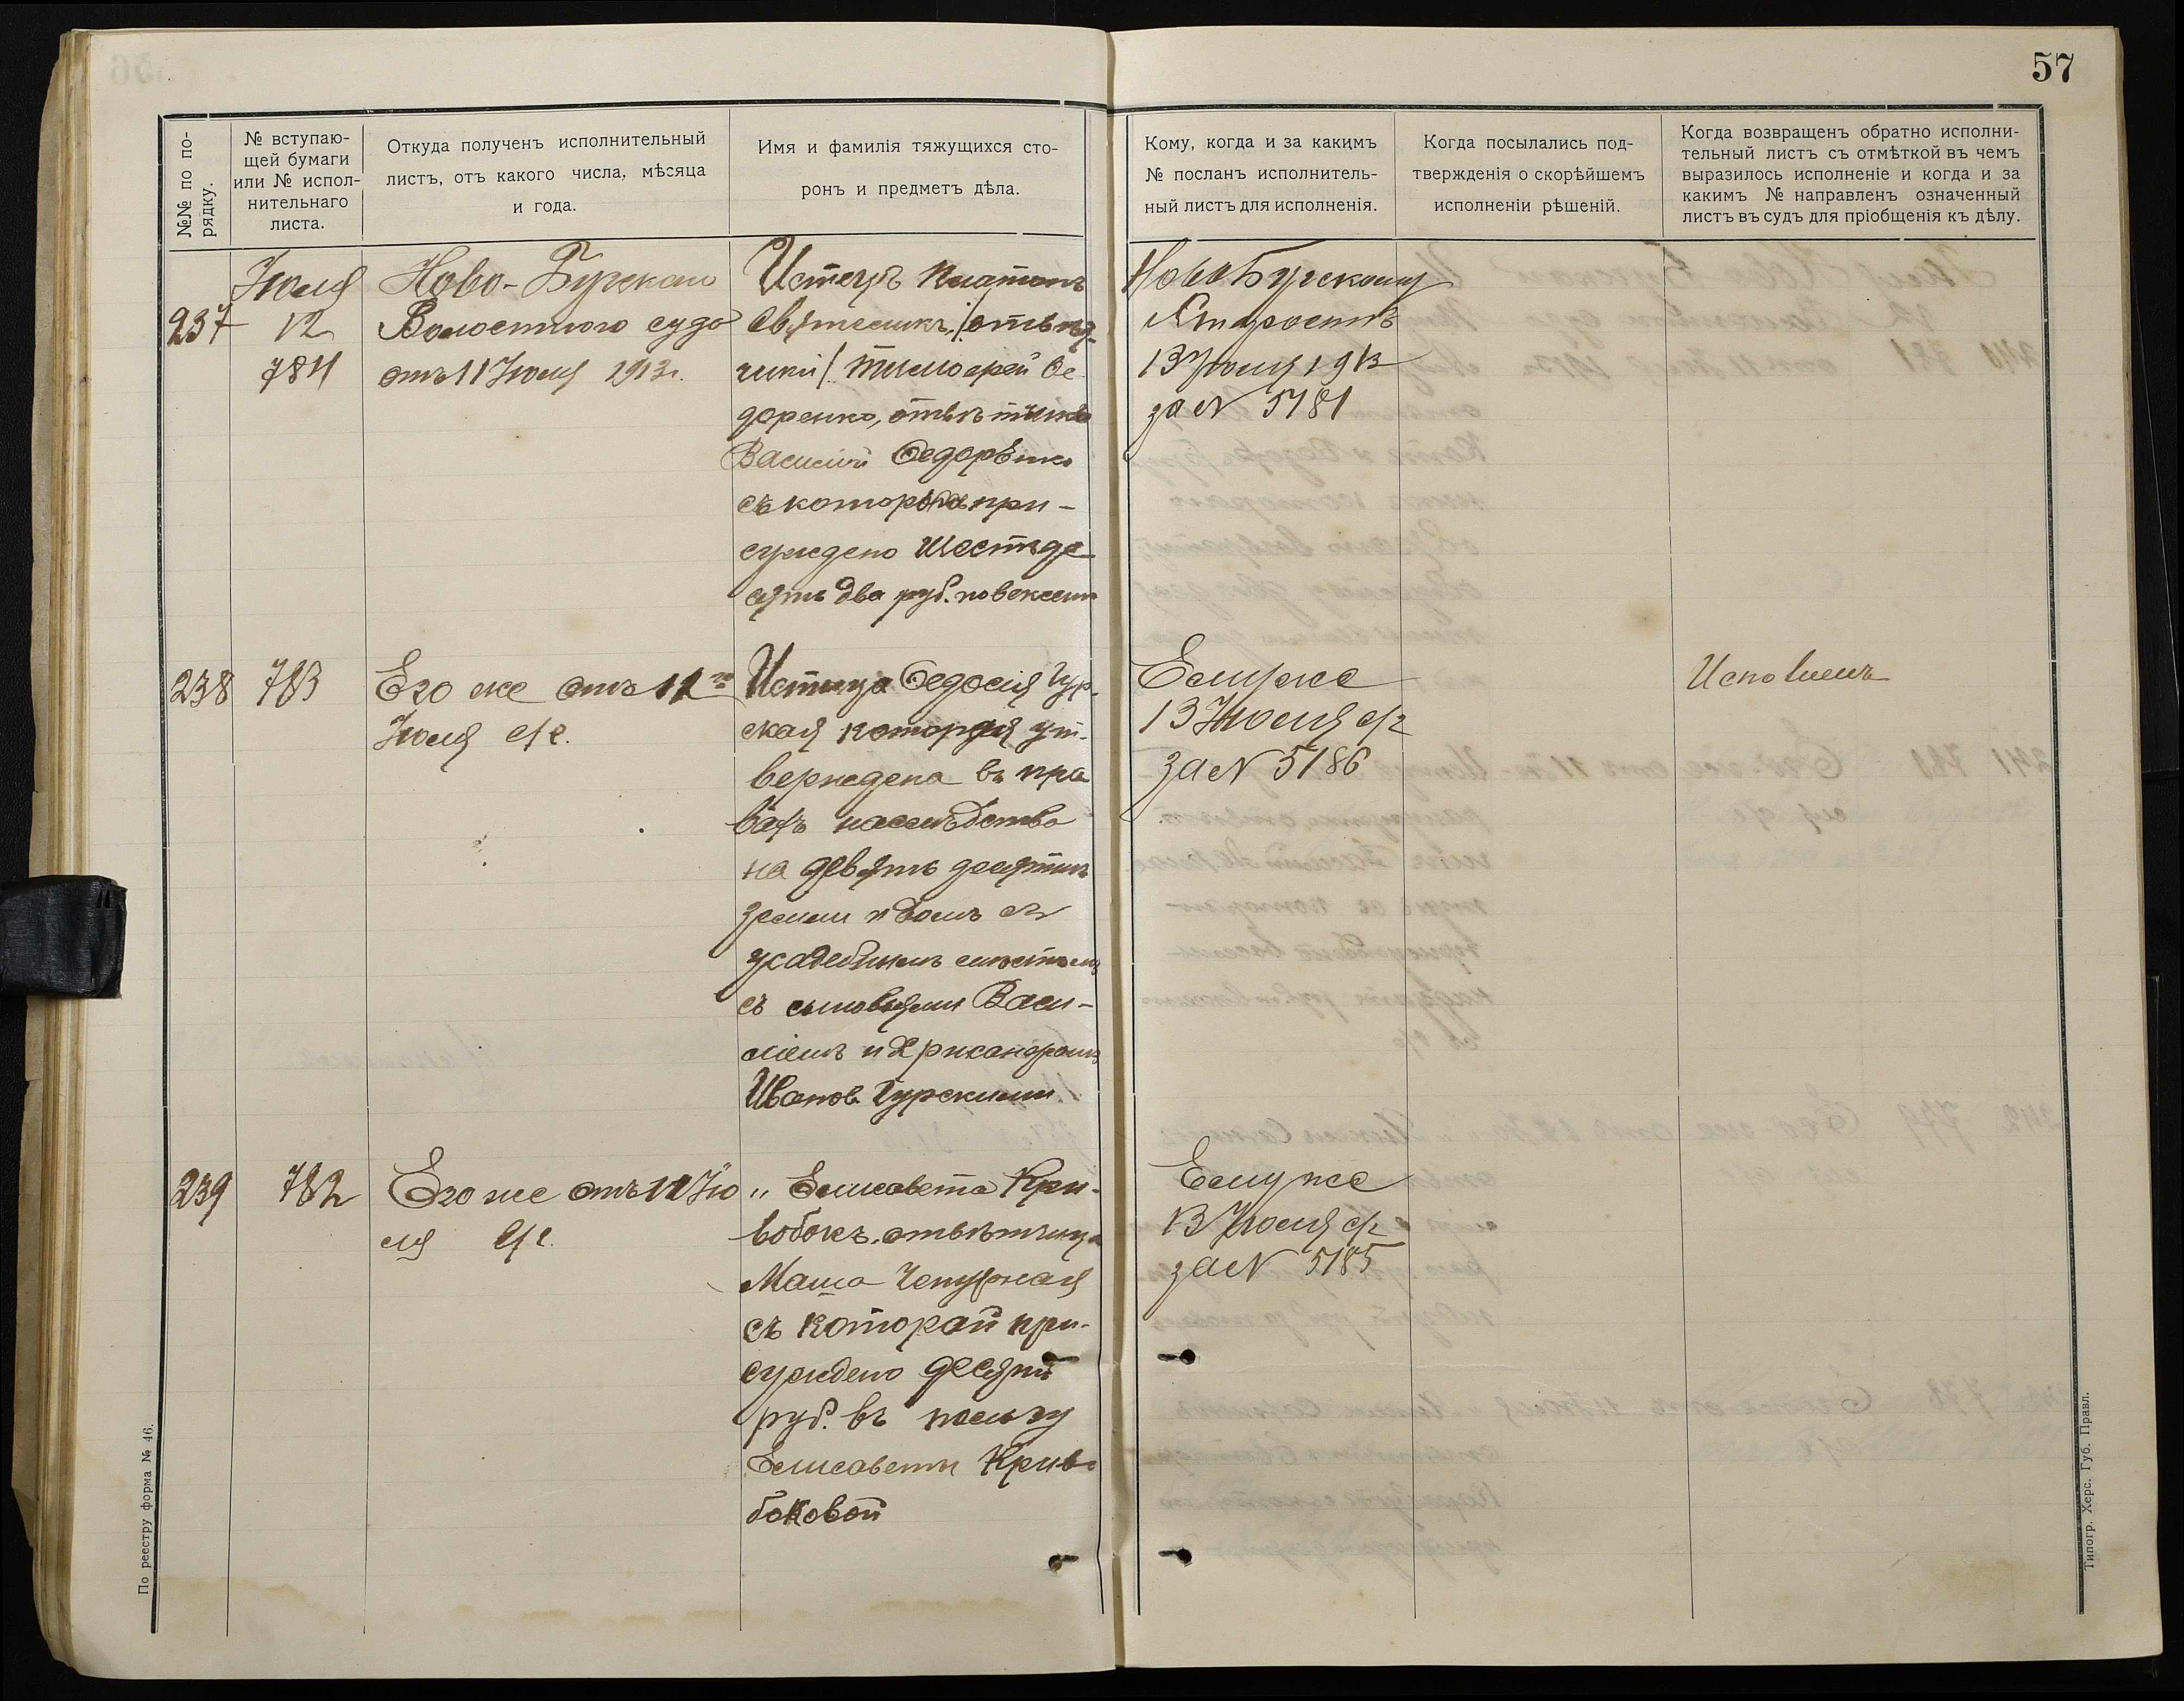 57
№№ по по-
рядку.
№ вступаю-
щей бумаги
или № испол-
нительнаго
листа.
Откуда полученъ исполнительный
листъ, отъ какого числа, мѣсяца
и года.
Имя и фамилія тяжущихся сто-
ронъ и предметъ дѣла.
Кому, когда и за какимъ
№ посланъ исполнитель-
ный листъ для исполненія.
Когда посылались под-
твержденія о скорѣйшемъ
исполненіи рѣшеній.
Когда возвращенъ обратно исполни-
тельный листъ съ отмѣткой въ чемъ
выразилось исполненіе и когда и за
какимъ № направленъ означенный
листъ въ судъ для пріобщенія къ дѣлу.
237
Іюля
12
784
Ново-Бургскаго
Волостного суда
отъ 11 Іюля 1913 г.
Истецъ Платонъ
чики/ Тимофей Ѳе
доренко,
Василій Ѳедорѣнко
съ которыхъ при-
суждено Шестьде
сятъ два руб. по векселю
Ново Бургскому
Старостѣ
13 Іюля 1913
за № 5181
238
783
Его же отъ 11го
Іюля с/г.
Истица Ѳедосія Гур-
ская которая ут-
верждена въ пра
вахъ наслѣдства
на девять десятинъ
земли и домъ съ
усадебнымъ мѣстомъ
съ сыновьями Васи-
ліемъ и Хрисанфомъ
Иванов. Гурскими
Ему же
13 Іюля с/г
за № 5186
Исполненъ
239
782
Его же отъ 11 Ію
ля с/г.
„ Елисавета Кри-
вобокъ, отвѣтчица
Маша Чепурная
съ которой при-
суждено десять
руб. въ пользу
Елисаветы Криво
боковой
Ему же
13 Іюля с/г
за № 5185
По реестру форма № 46.
Типогр. Херс. Губ. Правл.